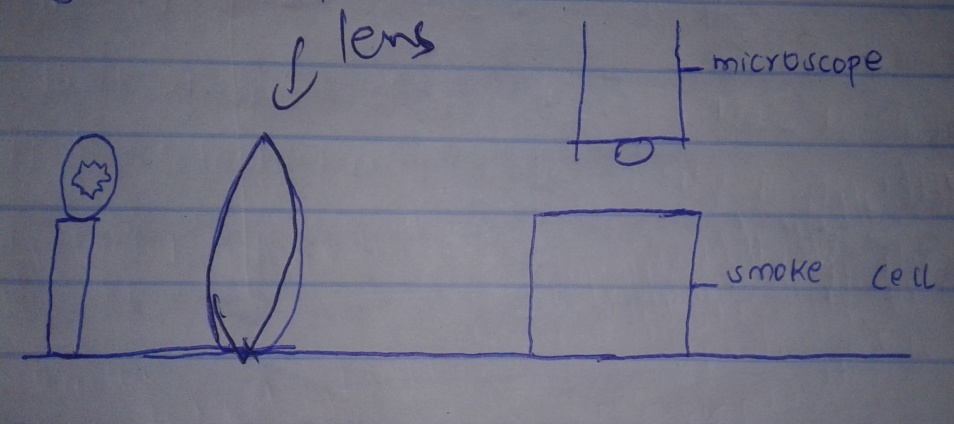 lens
microscope
smoke cell